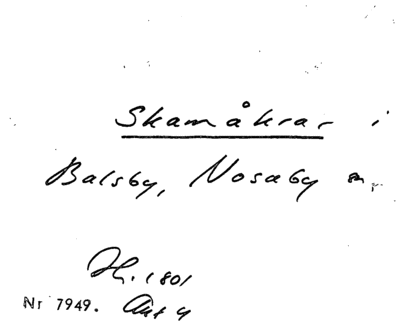 Skamåkrar i
Balsby, Nosaby sn.
H. 1801
Nr 7949.